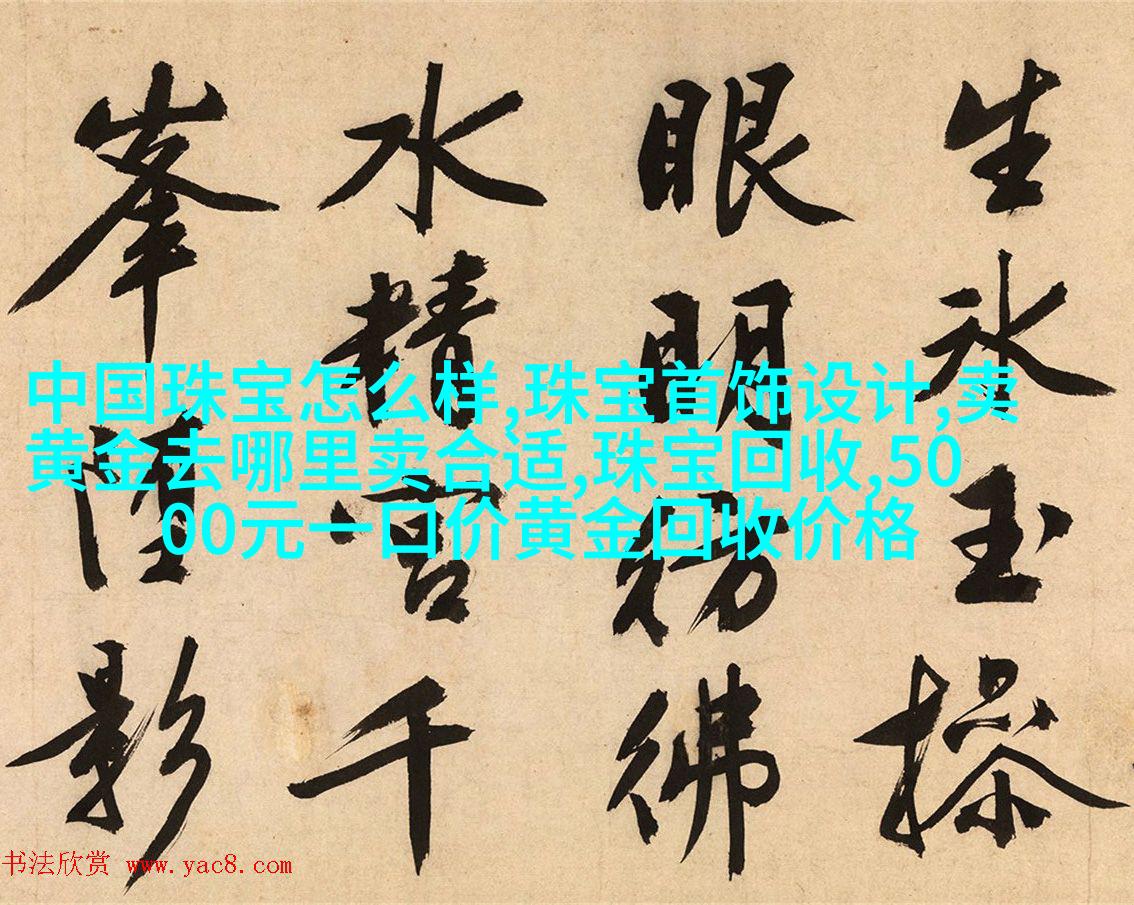 生氷玉操
眼明彷彿
水精宮千
峯影
中国珠宝怎么样,珠宝首饰设计,卖
黄金去哪里卖合适,珠宝回收,50
00元一口价黄金回收价格
书法欣赏 www.yac8.com